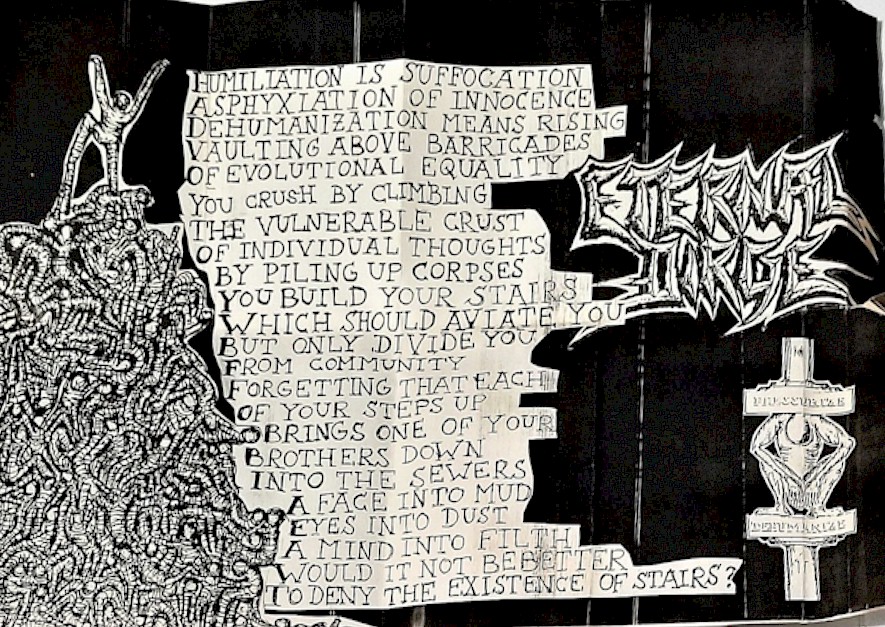 HUMILIATION IS SUFFOCATION
ASPHYXIATION OF INNOCENCE
DEHUMANIZATION MEANS RISING
VAULTING ABOVE BARRICADES
OF EVOLUTIONAL EQUALITY
YOU CRUSH BY CLIMBING
THE VULNERABLE CRUST
OF INDIVIDUAL THOUGHTS
BY PILING UP CORPSES
YOU BUILD YOUR STAIRS
WHICH SHOULD AVIATE YOU
BUT ONLY DIVIDE YOU
FROM COMMUNITY
FORGETTING THAT EACH
OF YOUR STEPS UP
BRINGS ONE OF YOUR
BROTHERS DOWN
INTO THE SEWERS
A FACE INTO MUD
EYES INTO DUST
A MIND INTO FILTH
WOULD IT NOT BE BETTER
TO DENY THE EXISTENCE OF STAIRS?
ETERNAL
DIRGE
PRESSURIZE
DEHUMANIZE